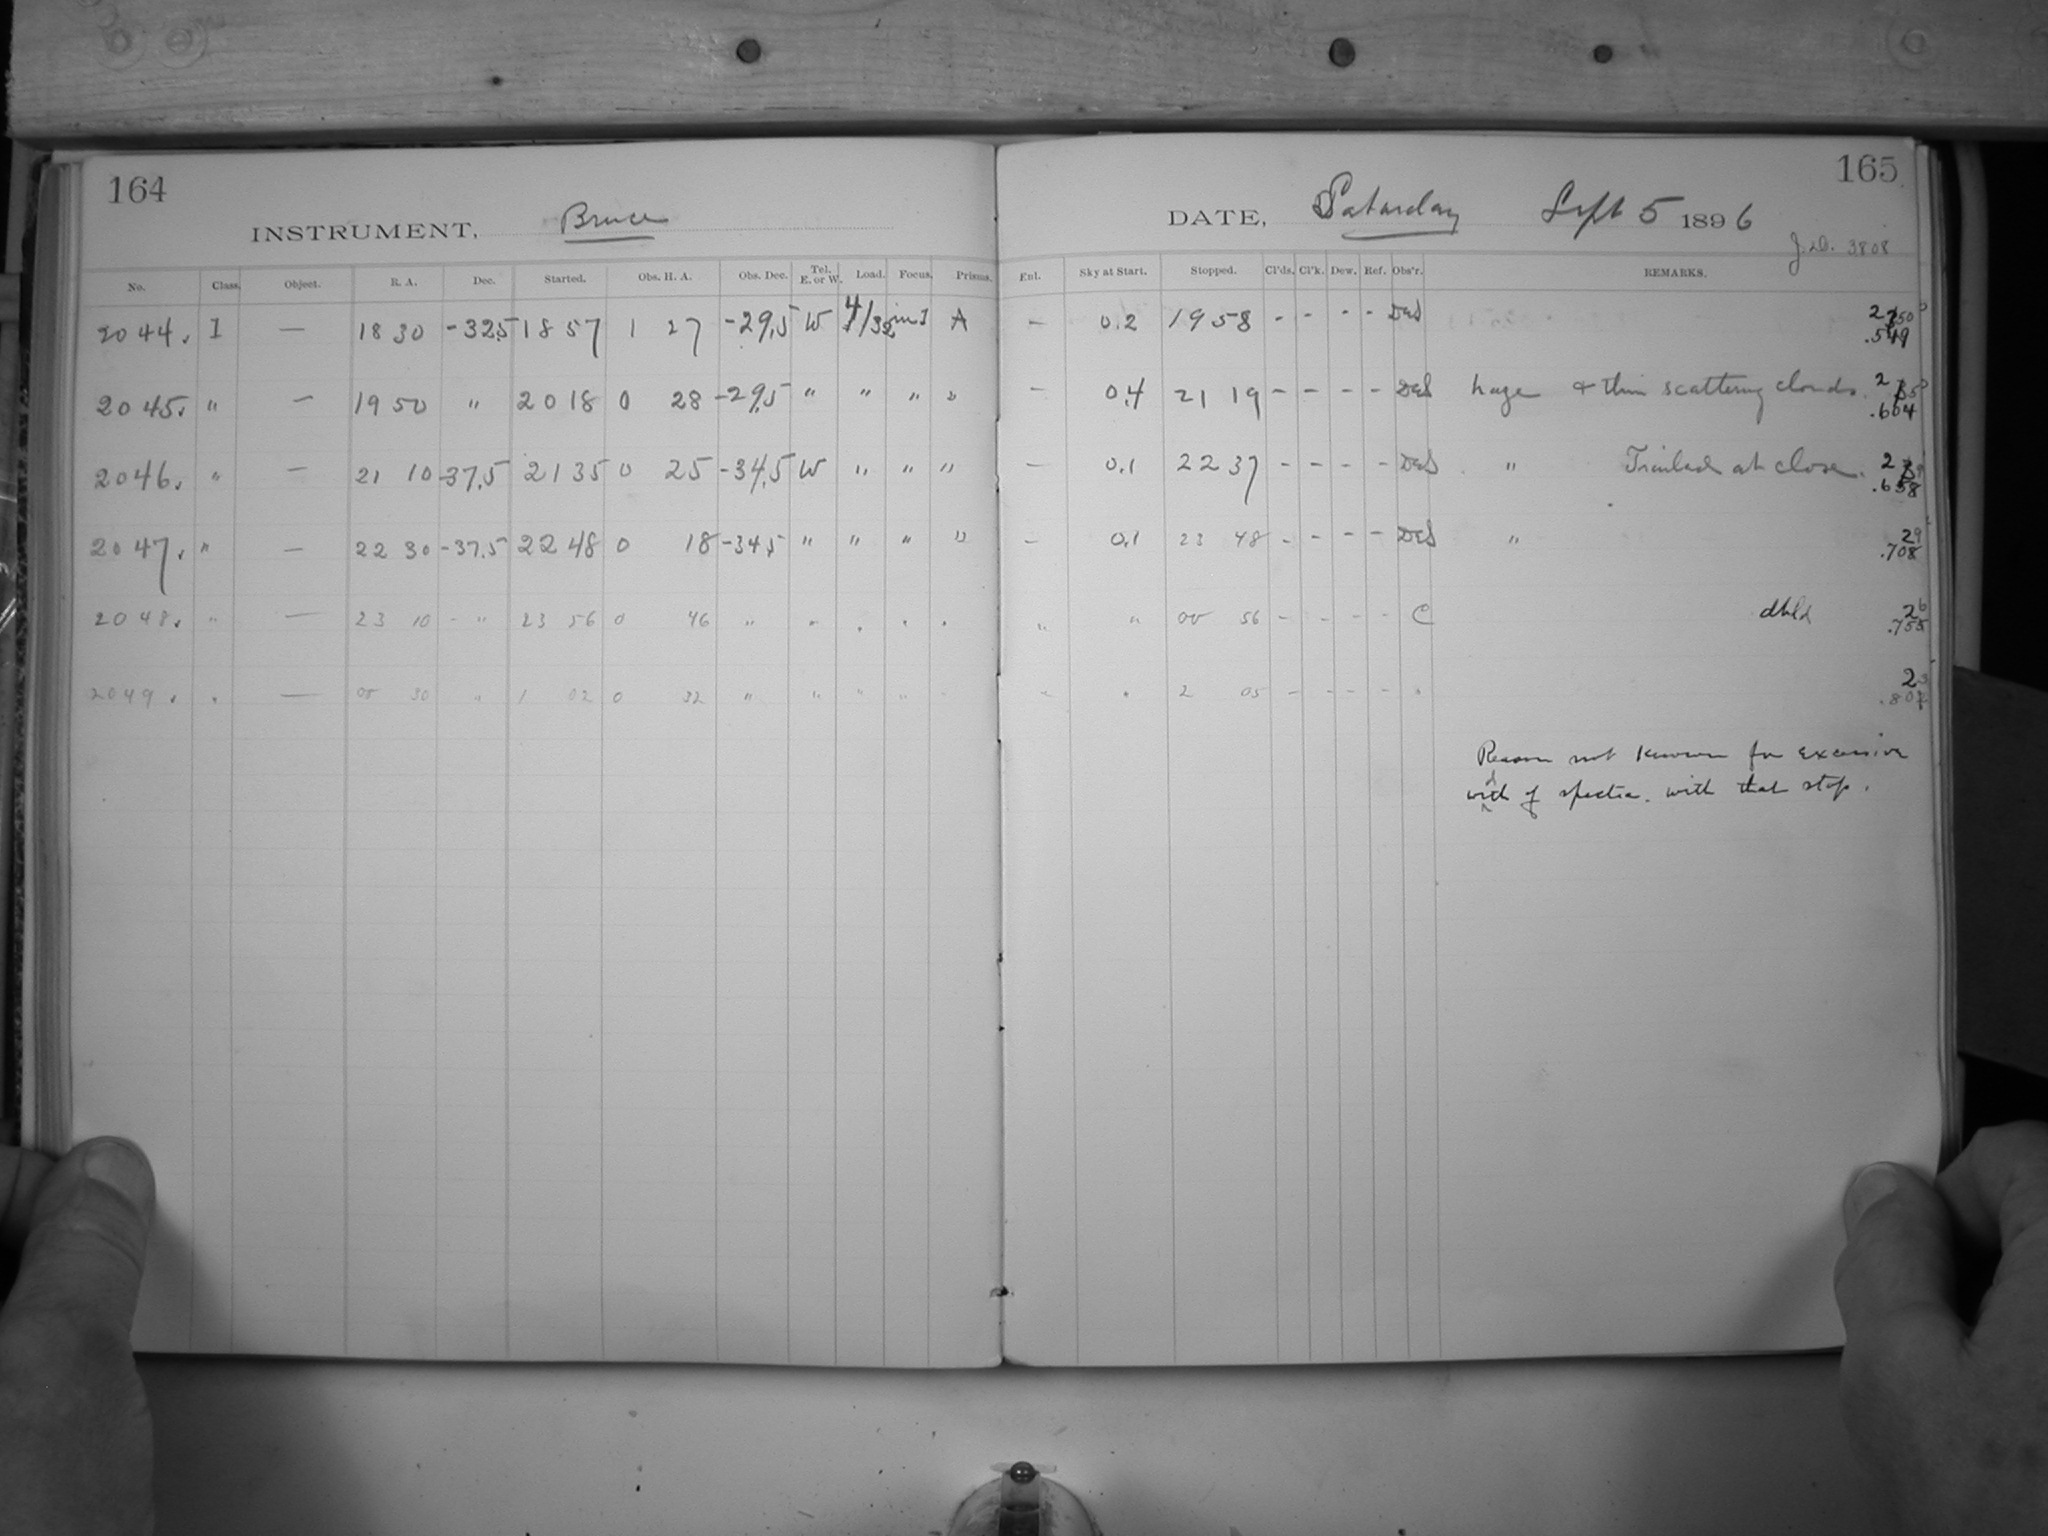 164
INSTRUMENT, Bruce
No. Class. Object. R. A. Dec. Started. Obs. H. A. Obs. Dec. Tel. E. or W. Load. Focus. Prisms.
2044. I — 18 30 -32.5 18 57 1 27 -29.5 W A
2045. " — 19 50 " 20 18 0 28 -29.5 " " " "
2046. " — 21 10 -37.5 21 35 0 25 -34.5 W " " "
2047. " — 22 30 -37.5 22 48 0 18 -34.5 " " " "
2048. " — 23 10 - " 23 56 0 46 " " " " "
2049. " — 00 30 " 1 02 0 32 " " " "
165
DATE, Saturday Sept 5 1896
J.D. 3808
Enl. Sky at Start. Stopped. Cl'ds. Cl'k. Dew. Ref. Obs'r. REMARKS.
— 0.2 19 58 - - - - DES
.549
— 0.4 21 19 - - - - DES haze & thin scattering clouds.
.604
— 0.1 22 37 - - - - DES " Trailed at close.
.658
— 0.1 23 48 - - - - DES " 29
.708
" " 00 56 - - - - C dbld 26
.755
" " 2 05 - - - - " 23
Reason not known for excessive
width of spectra. with that stop.